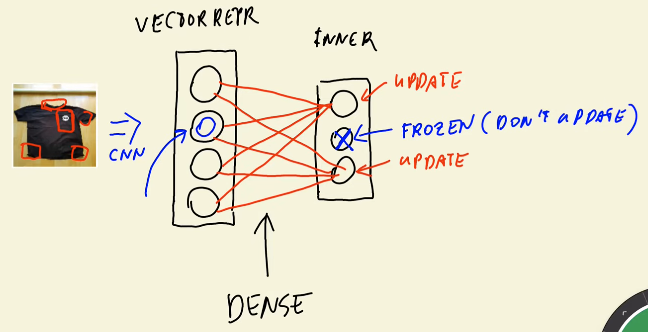 VECTOR REPR
INNER
UPDATE
CNN
FROZEN (DON'T UPDATE)
UPDATE
DENSE